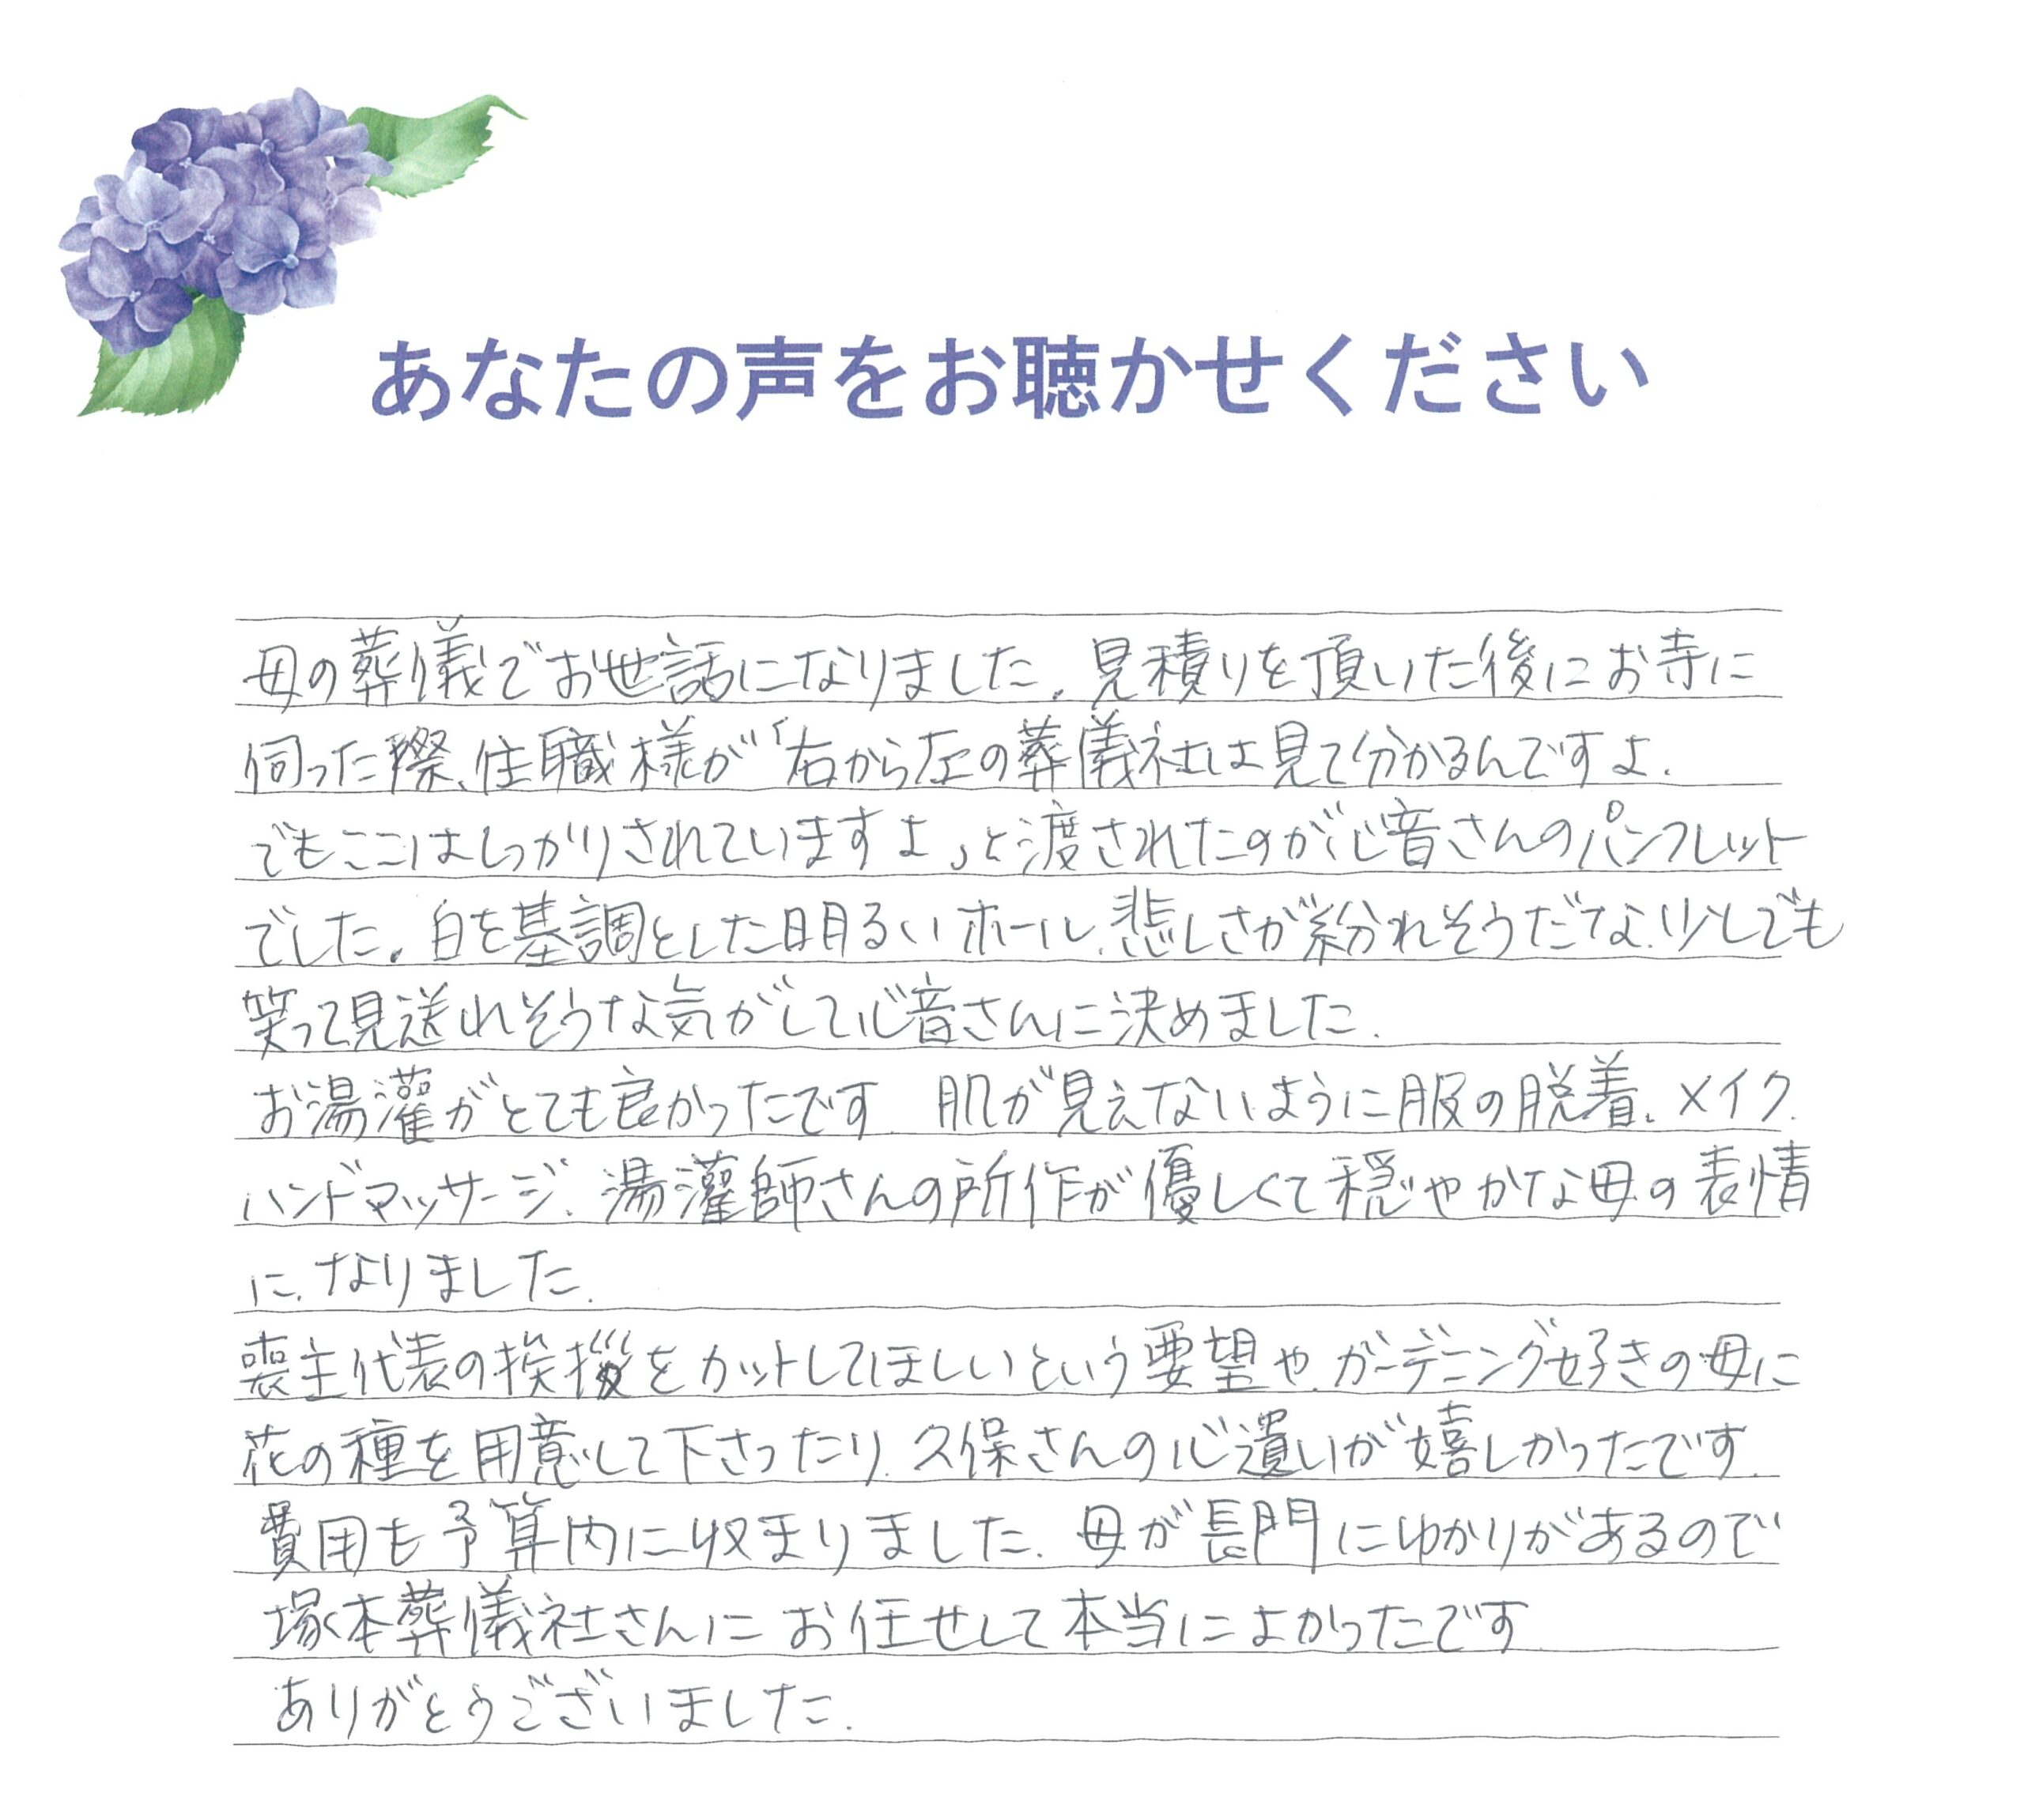 あなたの声をお聴かせください
母の葬儀でお世話になりました。見積りを頂いた後にお寺に
伺った際、住職様が「右から左の葬儀社は見て分かるんですよ。
でもここはしっかりされていますよ」と渡されたのが心音さんのパンフレット
でした。白を基調とした明るいホール、悲しさが紛れそうだな、少しでも
笑って見送れそうな気がして心音さんに決めました。
お湯灌がとても良かったです。肌が見えないように服の脱着、メイク、
ハンドマッサージ、湯灌師さんの所作が優しくて穏やかな母の表情
になりました。
喪主代表の挨拶をカットしてほしいという要望や、ガーデニング好きの母に
花の種を用意して下さったり、久保さんの心遣いが嬉しかったです。
費用も予算内に収まりました。母が長門にゆかりがあるので
塚本葬儀社さんにお任せして本当によかったです
ありがとうございました。